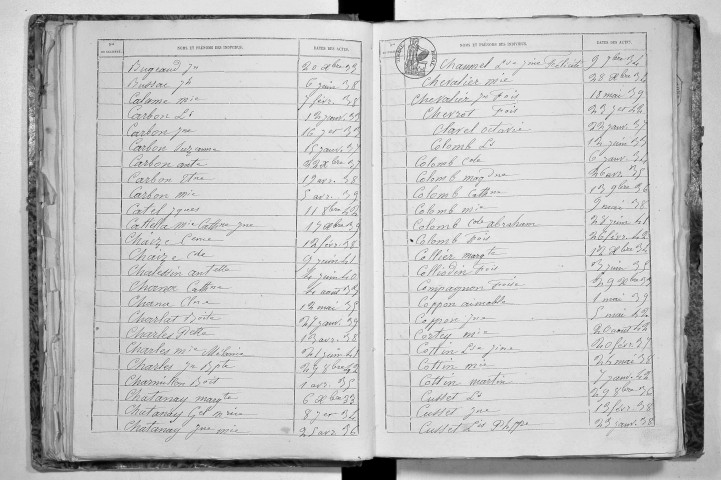 NOMS ET PRÉNOMS DES INDIVIDUS. DATES DES ACTES.
Bugeaud Jn 20 Xbre 33
Bussac Jh 6 juin 38
Calame mie 7 févr. 38
Carbon Ls 12 janv. 33
Carbon Jne
Carbon Suzanne 15 janv. 37
Carbon ante
Carbon 12 avr. 38
Carbon mie 5 avr. 39
Catel Jques 11 8bre 42
Catella mie Cathne Jne 17 Xbre 39
Chaize 12 févr. 38
Chaize Cde 9 juin 41
Chalessin antelle
Chana Cathne
Chane Clne 12 mai 35
Charlat 21 janv. 39
Charles 13 avr. 38
Charles mie Mélanie 21 juin 41
Charles Jn Bpte 29 8bre 42
Charmillon 1 avr. 35
Chatanay margte 6 Xbre 33
Chatanay 8 Jer 34
Chatanay Jne mie 25 avr. 36
NOMS ET PRÉNOMS DES INDIVIDUS. DATES DES ACTES.
Chaumet 9 7bre 34
Chevalier mie 28 Xbre 34
Chevalier Jn fois 18 mai 39
Chevrot fois 23 Jer 42
Clavel octavie 22 janv. 37
Colomb Ls 12 juin 33
Colomb Cde 6 janv. 34
Colomb magdne 26 avr. 35
Colomb Cathne 13 9bre 36
Colomb mie 9 mai 38
Colomb Cde abraham 27 juin 41
Colomb fois 26 févr. 42
Collier margte 12 Xbre 34
Colliedin fois
Compagnon 29 Xbre
Coppon aimable 1 mai 39
Coppon Jne 5 mai 42
Cortey mie 20 août 42
Cottin 20 févr. 37
Cottin mie 26 mai 38
Cottin martin 7 janv. 42
Cusset Ls 29 8bre 36
Cusset Jne 13 févr. 38
Cusset Ls Phppe 23 janv. 38